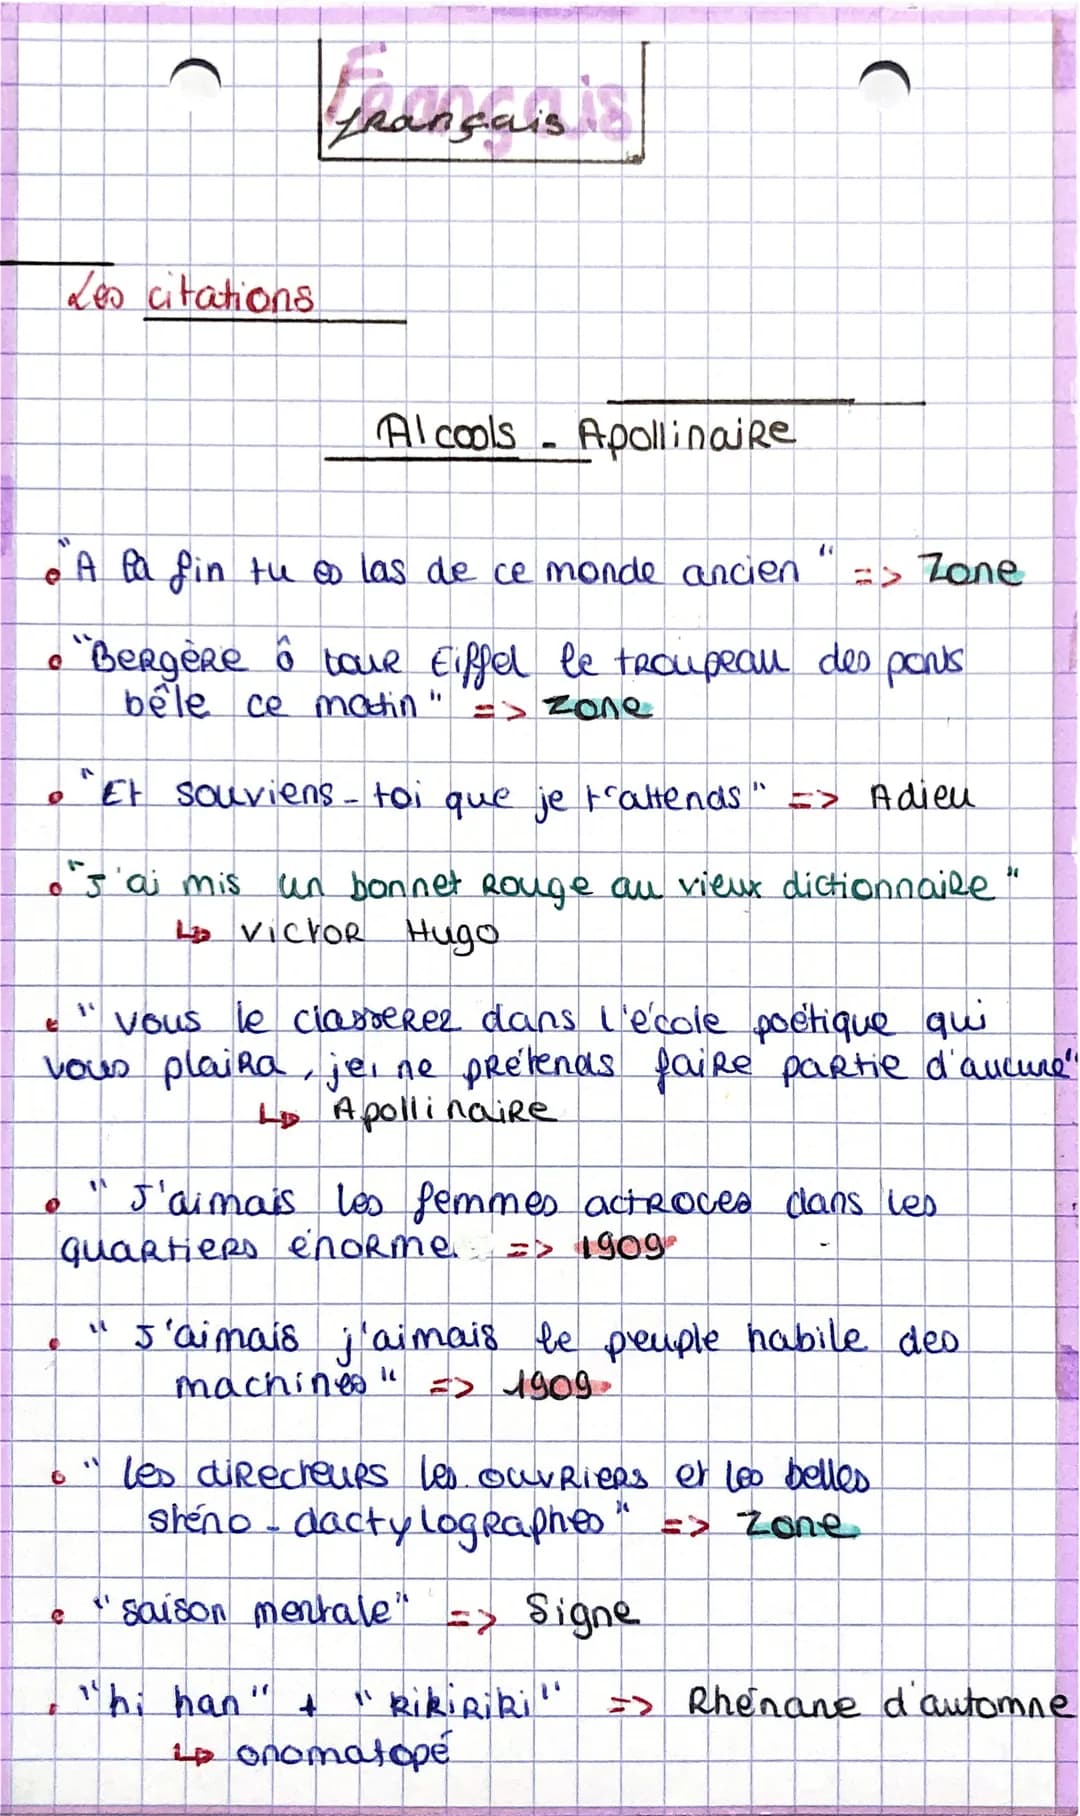 Français
français
Les citations
Alcools - Apollinaire
• "A la fin tu es las de ce monde ancien" => Zone
• "Bergère ô tour Eiffel le troupeau des ponts
bêle ce matin" => Zone
• "Et souviens-toi que je t'attends" => Adieu
• "J'ai mis un bonnet rouge au vieux dictionnaire"
↳ Victor Hugo
• "vous le classerez dans l'école poétique qui
vous plaira, je ne prétends faire partie d'aucune"
↳ Apollinaire
• "J'aimais les femmes actroces dans les
quartiers énorme. => 1909
• "J'aimais j'aimais le peuple habile des
machines" => 1909
• "les directeurs les ouvriers et les belles
sténo-dactylographes" => Zone
• "saison mentale" => Signe
• "hi han" + "kikiriki" => Rhénane d'automne
↳ onomatopé